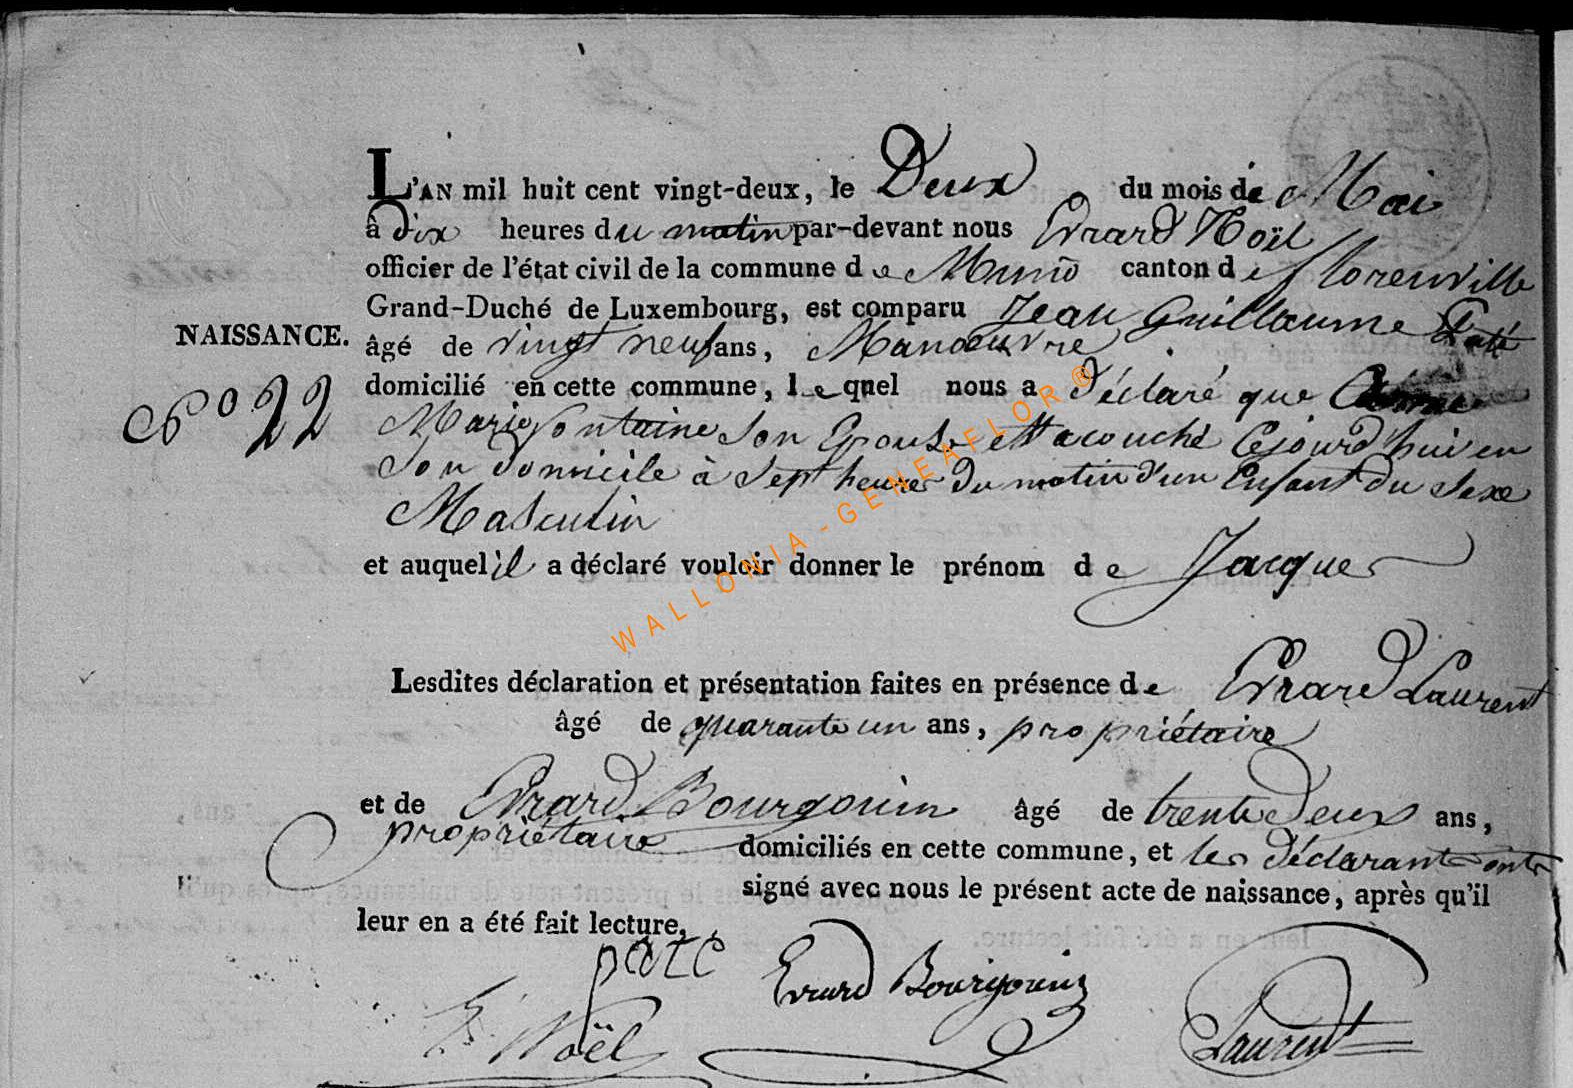 L'AN mil huit cent vingt-deux, le Deux du mois de Mai
à dix heures du matin par-devant nous Evrard Noël
officier de l'état civil de la commune de Muno canton de florenville
Grand-Duché de Luxembourg, est comparu Jean Guillaume Paté
NAISSANCE.
âgé de vingt neuf ans, Manoeuvre
domicilié en cette commune, lequel nous a déclaré que
N° 22
Marie fontaine Son Epouse est acouché Cejourd'hui en
Son domicile à Sept heures du matin d'un Enfant du Sexe
Masculin
et auquel il a déclaré vouloir donner le prénom de Jacques
Lesdites déclaration et présentation faites en présence de Evrard Laurent
âgé de quarante un ans, propriétaire
et de Evrard Bourgouin âgé de trente deux ans,
propriétaire domiciliés en cette commune, et les déclarants ont
signé avec nous le présent acte de naissance, après qu'il
leur en a été fait lecture.
paté Evrard Bourgouin
E. Noël Laurent
WALLONIA-GENEAFLOR®